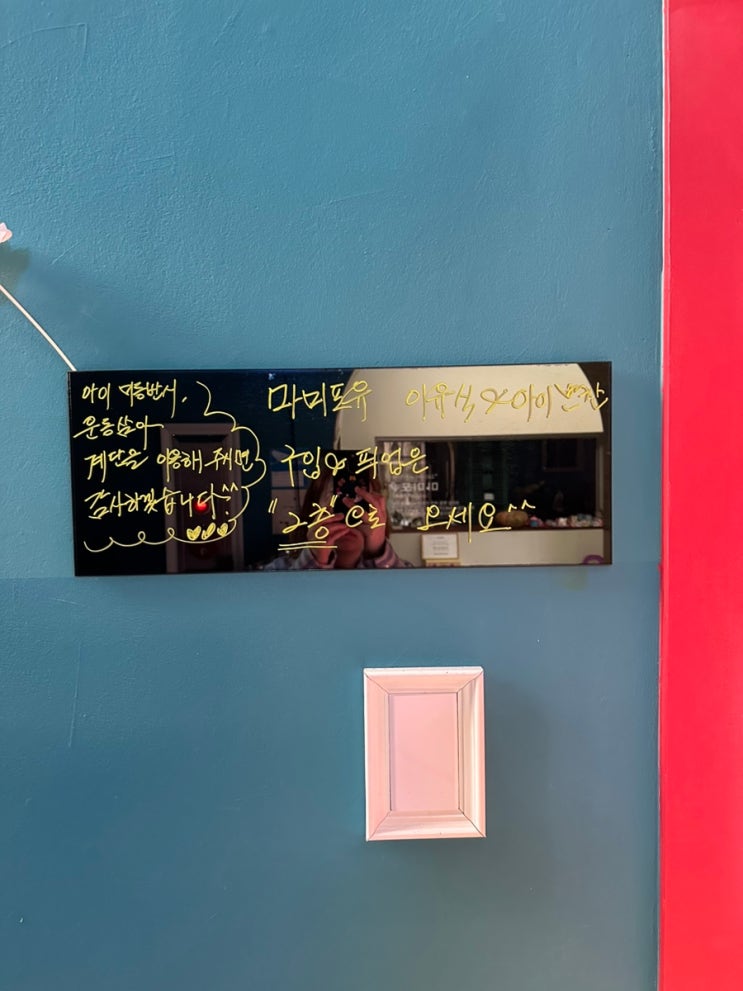 아이 미동반시,
운동삼아
계단을 이용해 주시면
감사하겠습니다!^^
마미포유 이유식&아이반찬
구입& 픽업은
"2층"으로 오세요^^